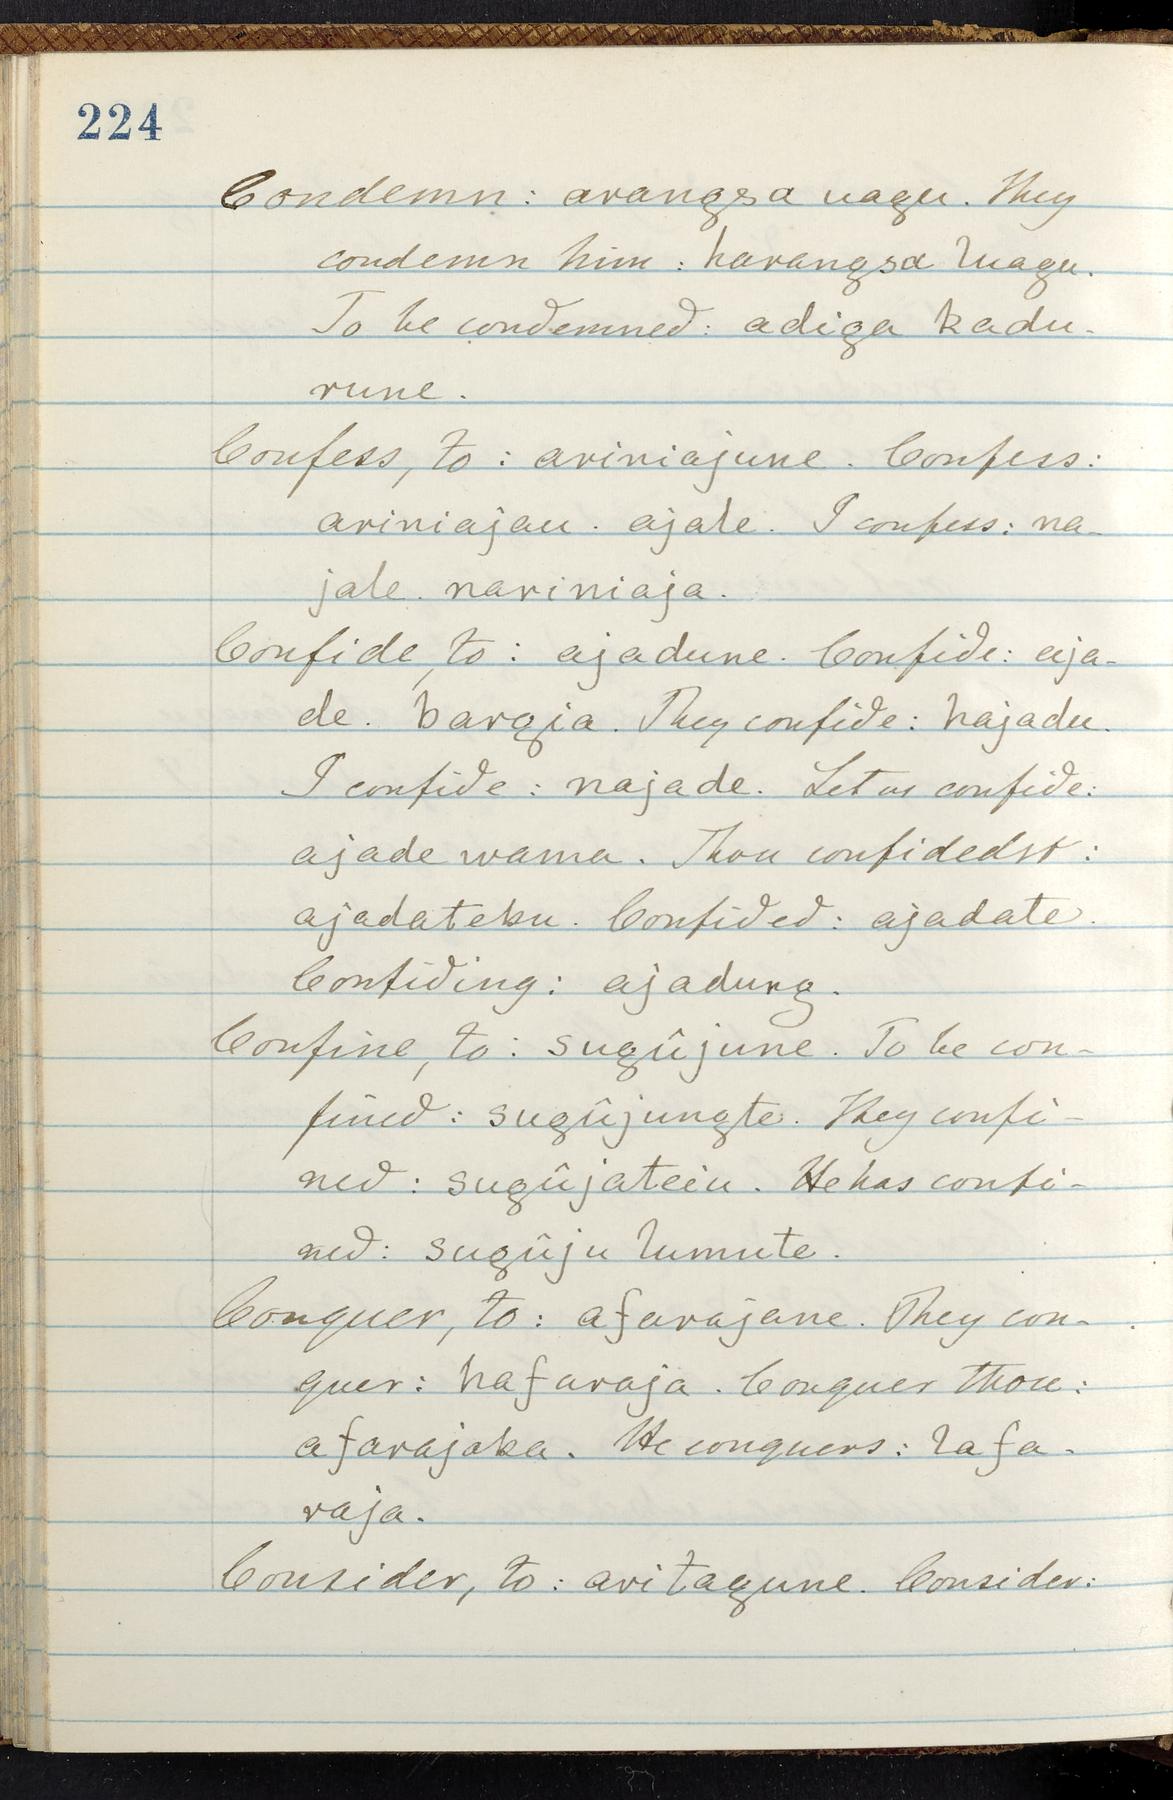 224
Condemn: arangsa uagu. They
condemn him: harangsa luagu.
To be condemned: adiga kadu-
rune.
Confess, to: ariniajune. Confess:
ariniajau. ajale. I confess: na-
jale. nariniaja.
Confide, to: ajadune. Confide: aja-
de. bargia. They confide: hajadu.
I confide: najade. Let us confide:
ajade wama. Thou confidedst:
ajadateku. Confided: ajadate.
Confiding: ajadung.
Confine, to: sugûjune. To be con-
fined: sugûjungte. They confi-
ned: sugûjateiu. He has confi-
ned: sugûju lumute.
Conquer, to: afarajane. They con-
quer: hafaraja. Conquer thou:
afarajaba. He conquers: lafa-
raja.
Consider, to: aritagune. Consider: